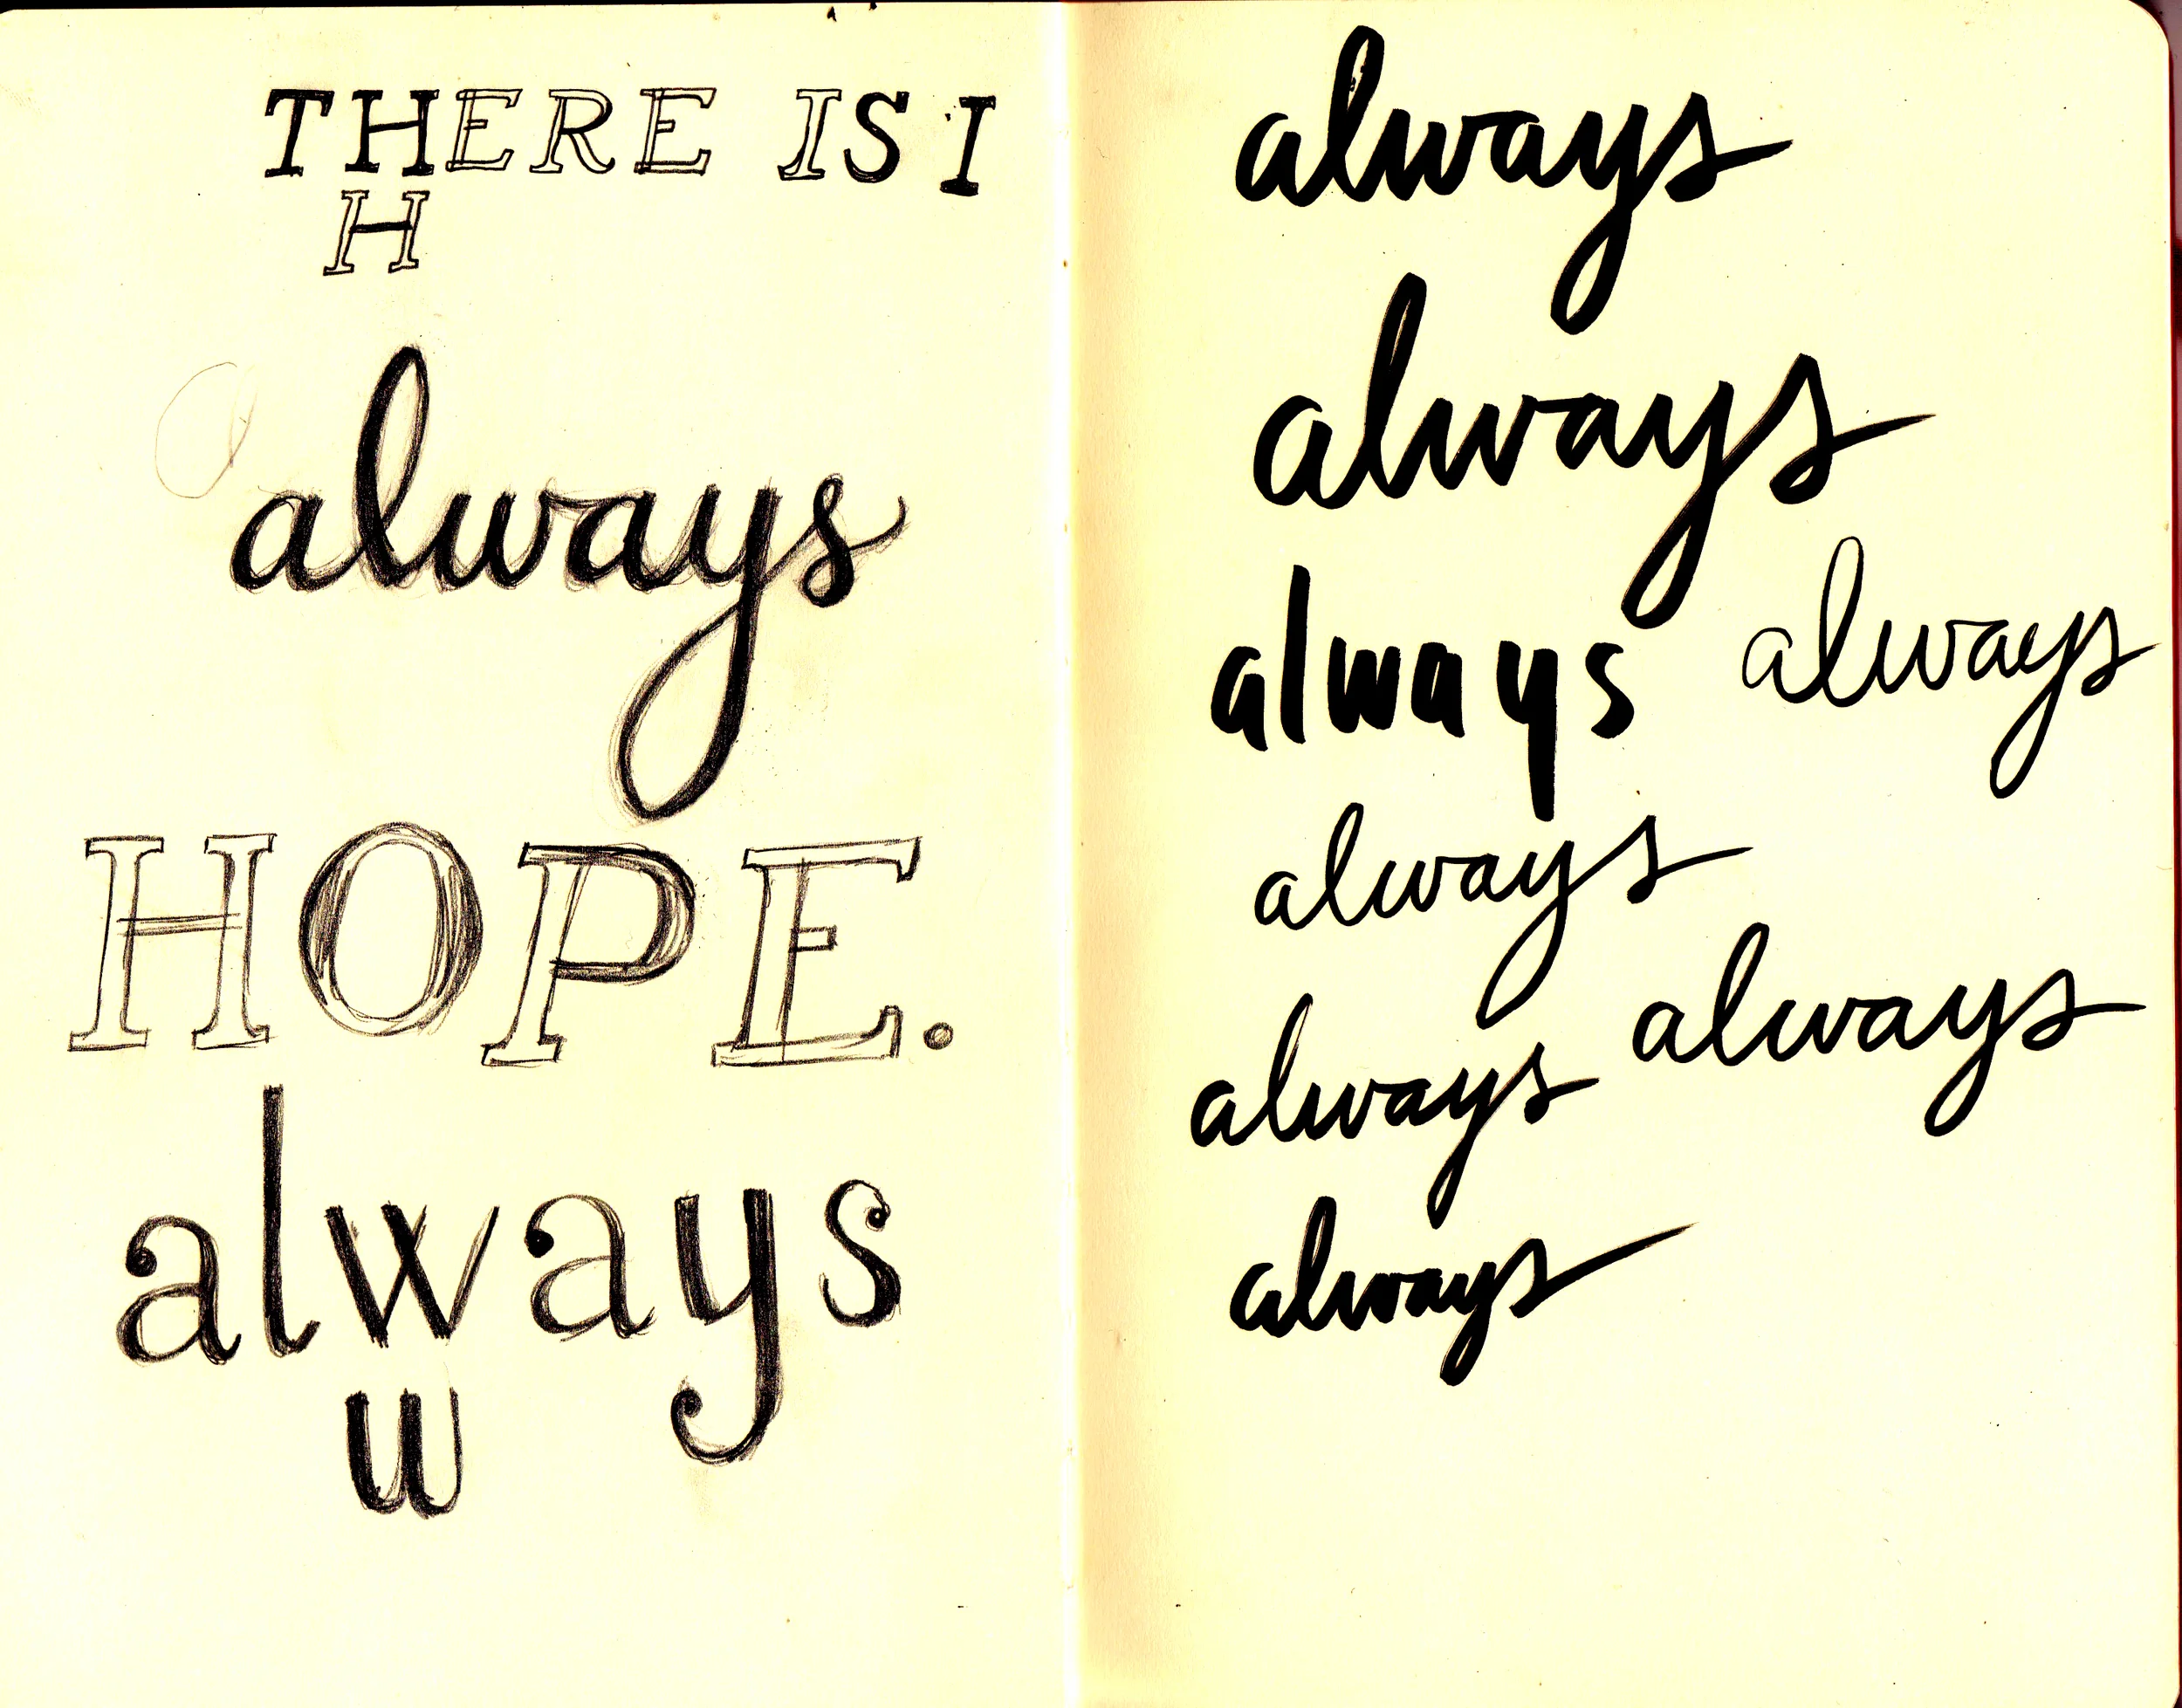 THERE IS I
H
always
HOPE.
always
w
always
always
always always
always
always always
always